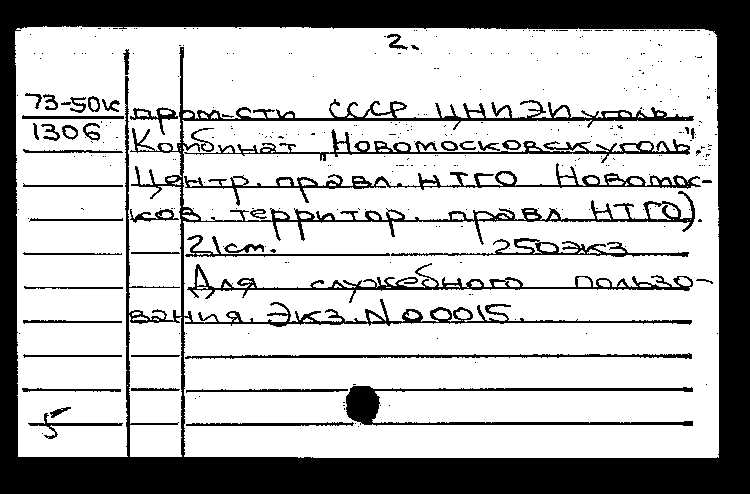 2.
73-50к пром-сти СССР ЦНИЭИуголь.
1306 Комбинат "Новомосковскуголь".
Центр. правл. НТГО Новомос-
ков. территор. правл. НТГО).
21 см. 250экз
Для служебного пользо-
вания. Экз. N00015.
5